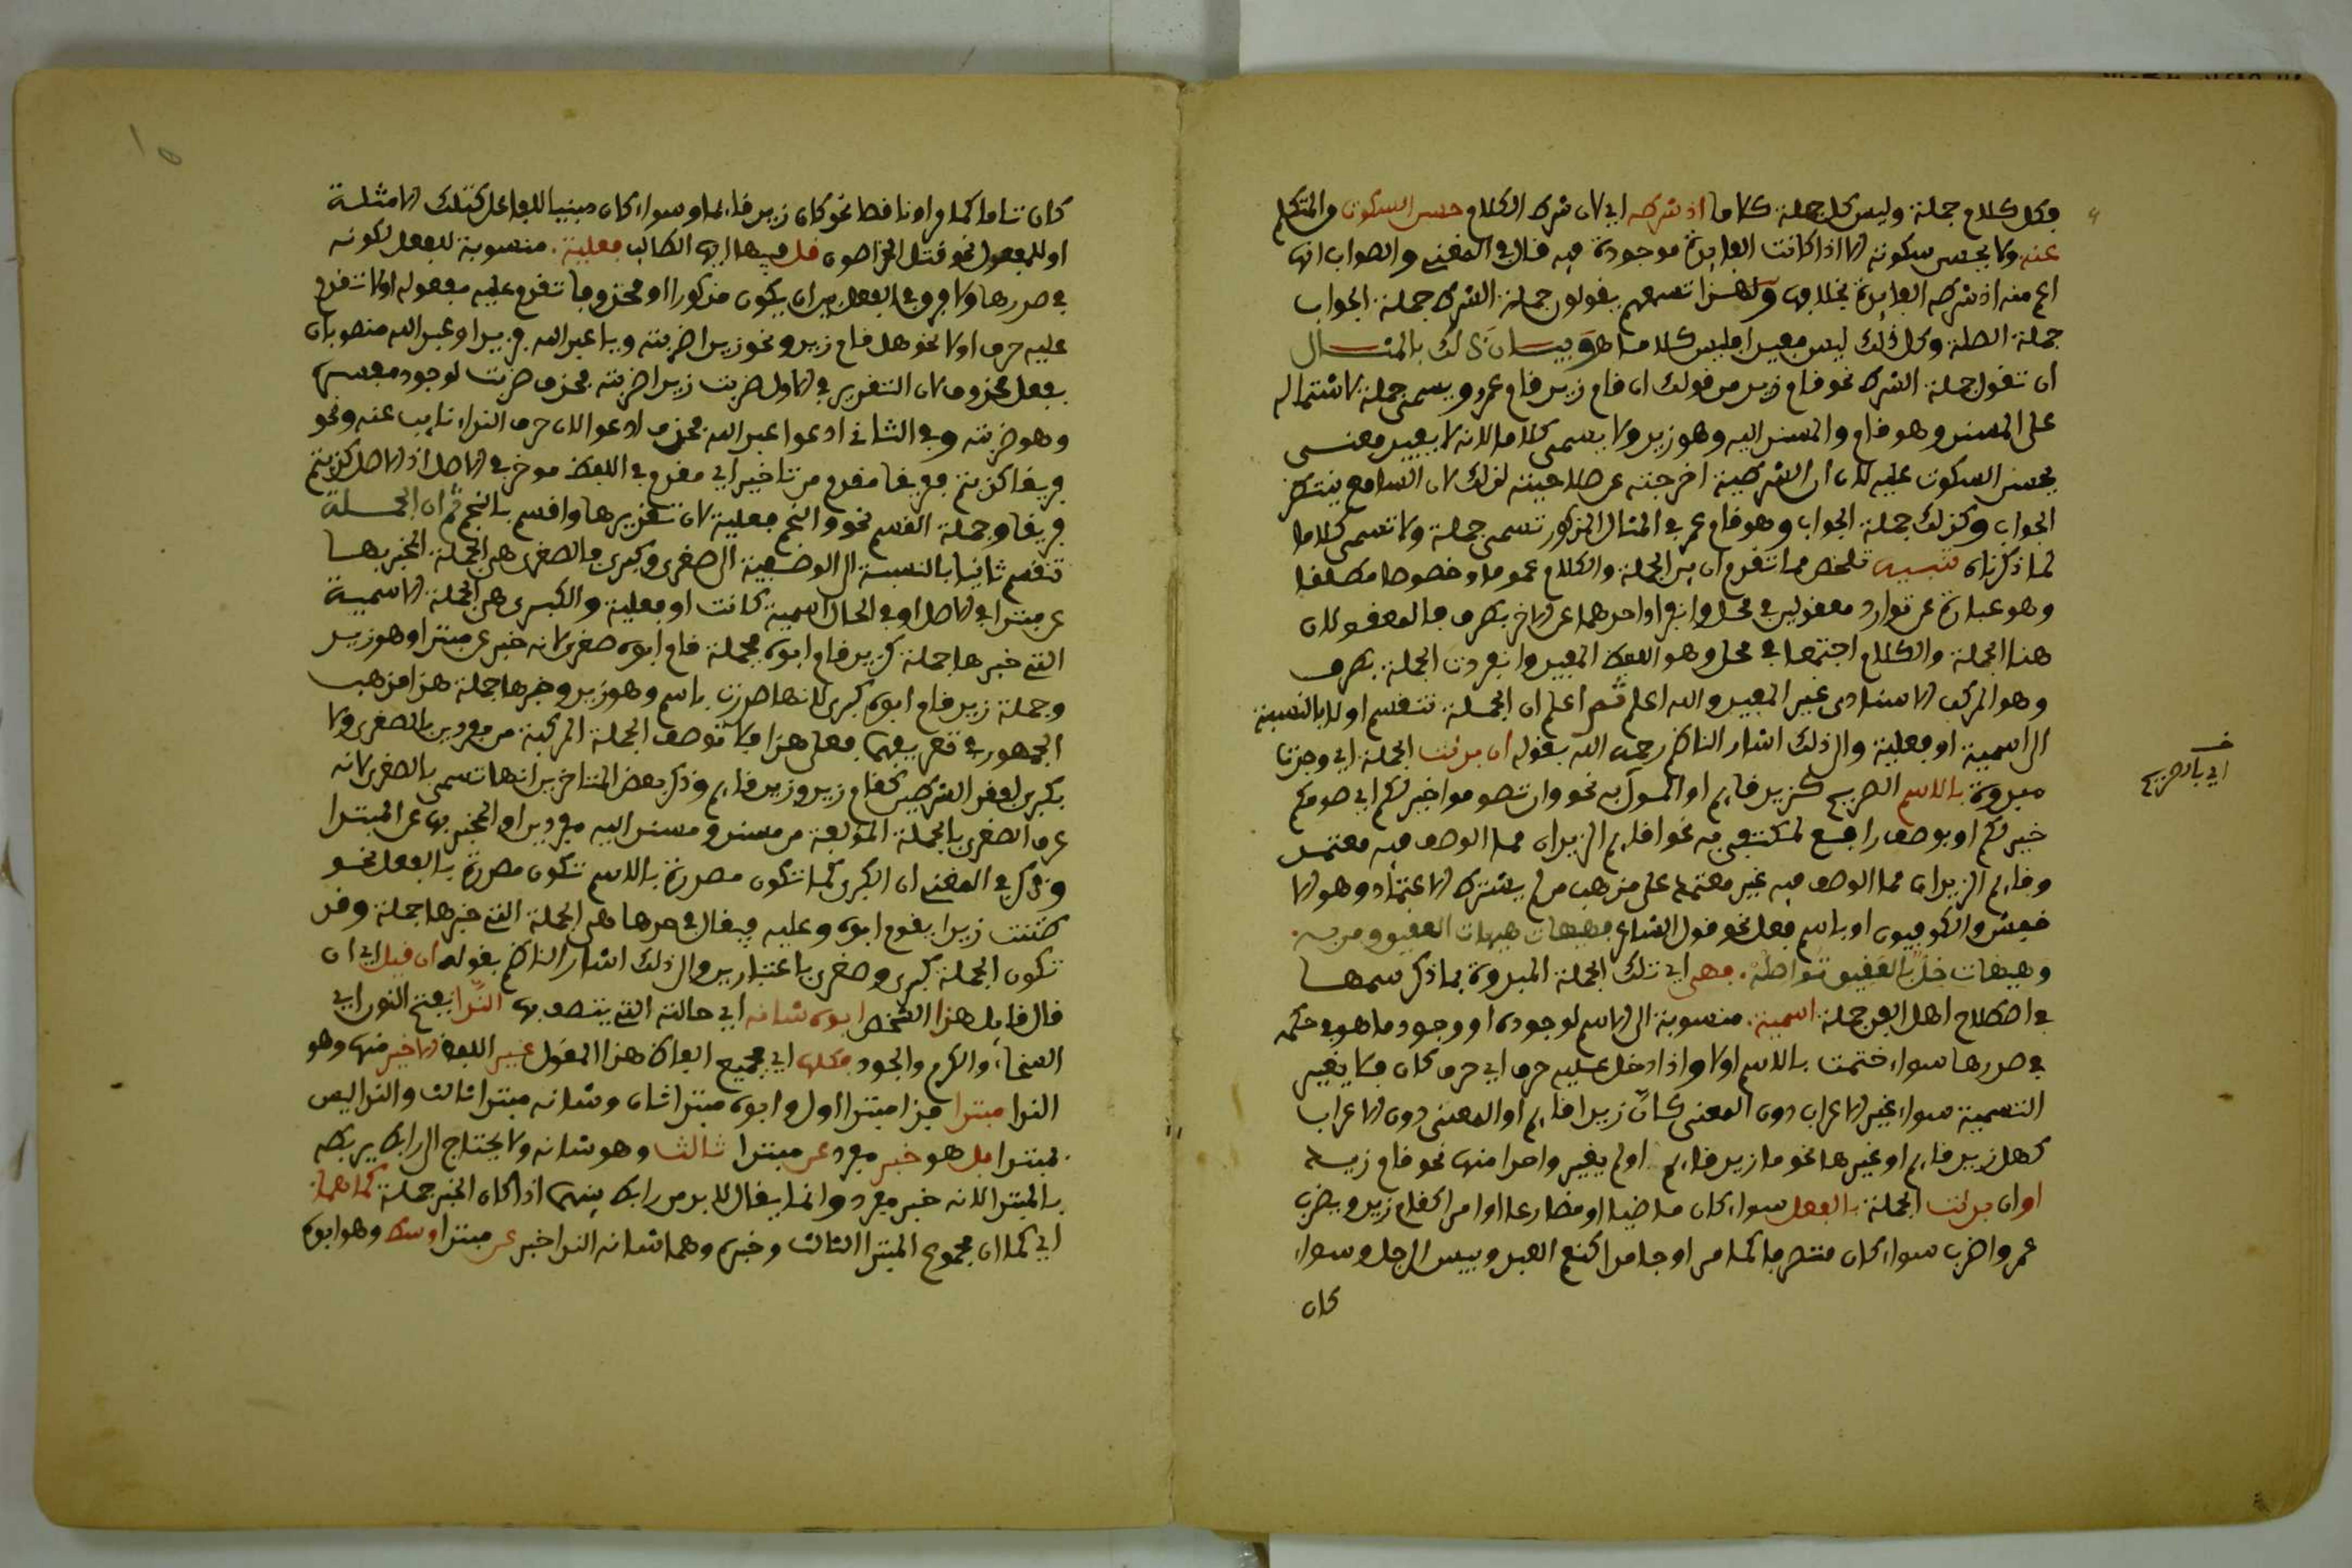 فكل كلام جملة وليس كل جملة كلاما اذ شرطه اي لان شرط الكلام حسن السكوت من المتكلم
عنه ولا يحسن سكوته الا اذا كانت الفايدة موجودة فيه قال في المغني والصواب انها
اعم منه اذ شرطه الفايدة بخلافها ولهذا تسمعهم يقولون جملة الشرط جملة الجواب
جملة الصلة وكل ذلك ليس مفيدا فليس كلاما هـ وبيان ذلك بالمثال
ان تقول جملة الشرط نحو قام زيد من قولك ان قام زيد قام عمرو يسمى جملة لاشتماله
على المسند وهو قام والمسند اليه وهو زيد ولا يسمى كلاما لانه لا يفيد معنى
يحسن السكوت عليه لان ان الشرطية اخرجته عن صلاحيته لذلك لان السامع ينتظر
الجواب وكذلك جملة الجواب وهو قام عمر في المثال المذكور تسمى جملة ولا تسمى كلاما
لما ذكرناه تنبيه تلخص مما تقدم ان بين الجملة والكلام عموما وخصوصا مطلقا
وهو عبارة عن توارد معقولين في محل وانفراد احدهما عن الاخر بطرف فالمعقولان
هنا الجملة والكلام اجتمعا في محل وهو اللفظ المفيد وانفردت الجملة بطرف
وهو المركب الاسنادي غير المفيد والله اعلم ثم اعلم ان الجملة تنقسم اولا بالنسبة
الى اسمية او فعلية والى ذلك اشار الناظم رحمه الله بقوله ان بدئت الجملة اي وجدتها
مبدوة بالاسم الصريح كزيد قايم او المول به نحو وان تصوموا خير لكم اي صومكم
خير لكم او بوصف رافع لمكتفى به نحو اقايم الزيدان مما الوصف فيه معتمد
وقايم الزيدان مما الوصف فيه غير معتمد على مذهب من لم يشترط الاعتماد وهو الا
خفش والكوفيون او باسم فعل نحو قول الشاعر فهيهات هيهات العقيق ومن به
وهيهات خل بالعقيق نواصله فهي اي تلك الجملة المبدوة بما ذكر سمها
في اصطلاح اهل الفن جملة اسمية منسوبة الى الاسم لوجوده او وجود ما هو في حكمه
في صدرها سواء ختمت بالاسم اولا واذا دخل عليه حرف اي حرف كان فلا يغير
التسمية سواء غير الاعراب دون المعنى كان زيدا قايم او المعنى دون الاعراب
كهل زيد قايم او غيرها نحو ما زيد قايم او لم يغير واحدا منها نحو قام زيد
او ان بدئت الجملة بالفعل سواء كان ماضيا او مضارعا او امرا كقام زيد ويضرب
عمر واضرب سواء كان متصرفا كما مر او جامدا كنعم العبد وبيس الرجل وسواء
كان
اي بالصريح
كان تاما كما مر او ناقصا نحو كان زيد قايما وسواء كان مبنيا للفاعل كتلك الامثلة
او للمفعول نحو قتل الخراصون قل فيها ايها الطالب فعلية منسوبة للفعل لكونه
في صدرها ولا فرق في الفعل بين ان يكون مذكورا او محذوفا تقدم عليه معموله اولا تقدم
عليه حرف اولا نحو هل قام زيد ونحو زيدا ضربته ويا عبد الله فزيدا وعبد الله منصوبان
بفعل محذوف لان التقدير في الاول ضربت زيدا ضربته فحذف ضربت لوجود مفسره
وهو ضربته وفي الثاني ادعوا عبد الله فحذف ادعوا لان حرف النداء نايب عنه ونحو
فريقا كذبتم ففريقا مقدم من تاخير اي مقدم في اللفظ موخر في الاصل اذ الاصل كذبتم
فريقا وجملة القسم نحو والنجم فعلية لان تقديرها واقسم بالنجم ثم ان الجملة
تنقسم ثانيا بالنسبة الى الوصفية الى صغرى وكبرى فالصغرى هي الجملة المخبر بها
عن مبتدا في الاصل او في الحال اسمية كانت او فعلية والكبرى هي الجملة الاسمية
التي خبرها جملة كزيد قام ابوه فجملة قام ابوه صغرى لانه خبر عن مبتدا وهو زيد
وجملة زيد قام ابوه كبرى لانها صدرت باسم وهو زيد وخبرها جملة هذا مذهب
الجمهور في تعريفهما فعلى هذا فلا توصف الجملة المركبة من مفردين بالصغرى ولا
بكبرى لفقد الشرطين كقام زيد وزيد قايم وذكر بعض المتاخرين انها تسمى بالصغرى لانه
عرف الصغرى بالجملة المولفة من مسند ومسند اليه مفردين او المخبر بها عن المبتدا
وذكر في المغني ان الكبرى كما تكون مصدرة بالاسم تكون مصدرة بالفعل نحو
ظننت زيدا يقوم ابوه وعليه فيقال في حدها هي الجملة التي خبرها جملة وقد
تكون الجملة كبرى وصغرى باعتبارين والى ذلك اشار الناظم بقوله ان قيل اي ان
قال قايل هذا الشخص ابوه شانه اي حالته التي يتصف بها الندا بفتح النون اي
السخاء والكرم والجود فكلها اي جميع الفاظ هذا القول غير اللفظ الاخير منها وهو
الندا مبتدا فذا مبتدا اول وابوه مبتدا ثان وشانه مبتدا ثالث والندا ليس
بمبتدا بل هو خبر مفرد عن مبتدا ثالث وهو شانه ولا يحتاج الى رابط يربطه
بالمبتدا لانه خبر مفرد وانما يقال لابد من رابط بينهما اذا كان الخبر جملة كما هما
اي كما ان مجموع المبتدا الثالث وخبره وهما شانه الندا خبر عن مبتدا وسط وهو ابوه